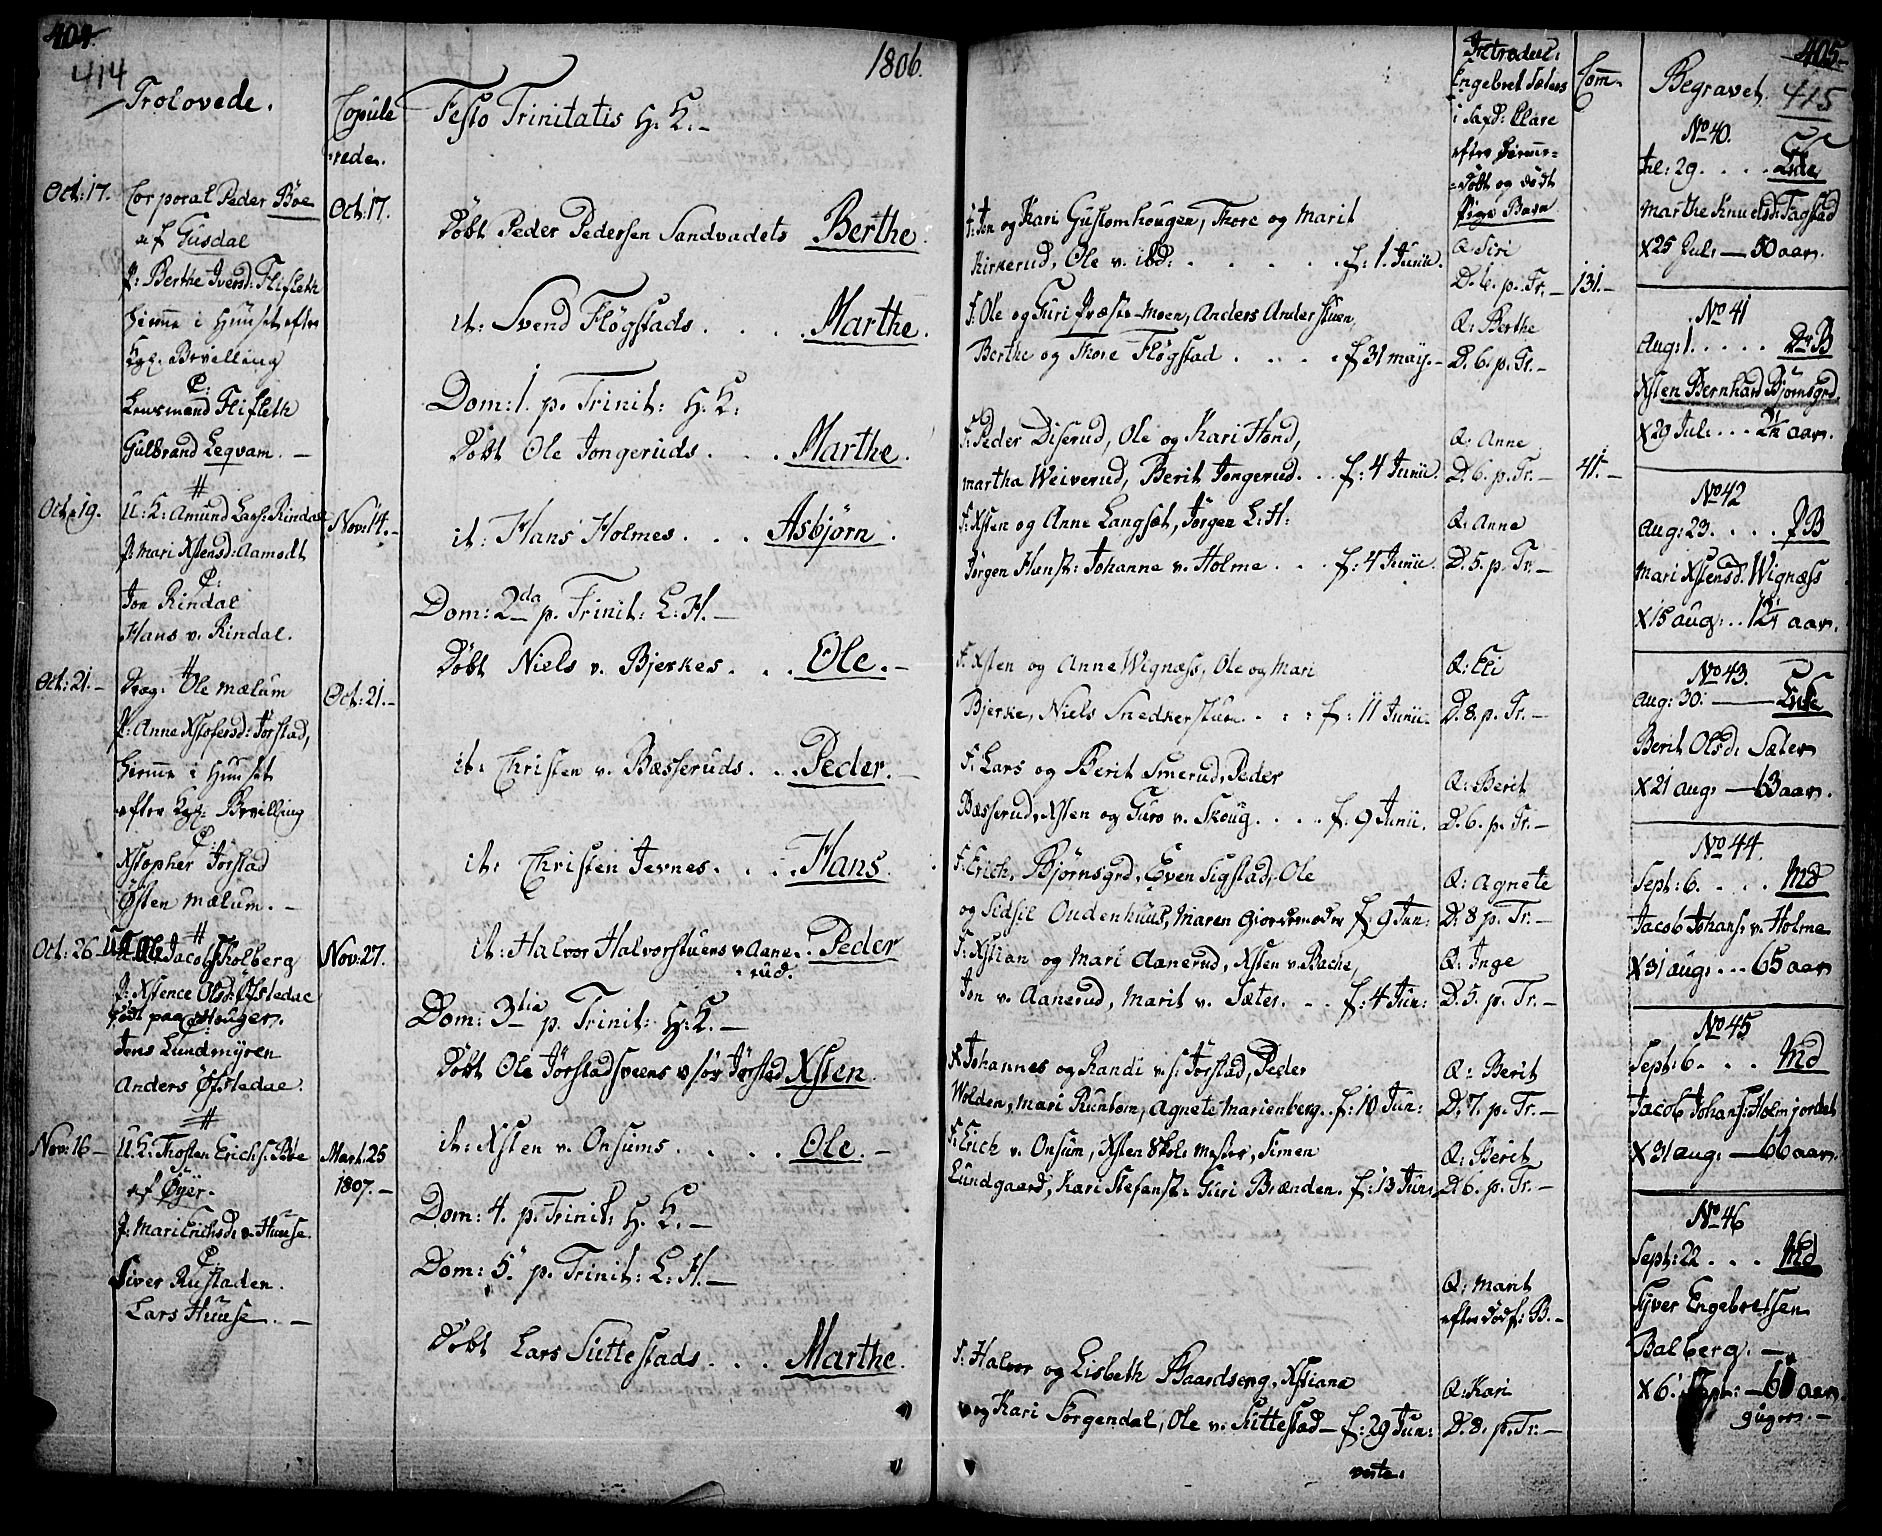 404.
414
1806.
Trolovede.
Copule
rede.
Festo Trinitatis H: K. –
Oct: 17.
Corporal Peder Böe
af Gusdal
P: Berthe Iversd: Flifleth
hieme i Huuset efter
Kgl. Bevilling
C:
Lensmand Flifleth
Gulbrand Leqvam. –
Oct: 17.
Oct: 19.
U: K: Amund Lars: Rindal
P: Mari Xstensd: Aamodt
C:
Jon Rindal
Hans v. Rindal.
Nov: 14. –
Oct: 21. –
Drag: Ole Mælum
P: Anne Xstofersd: Jörstad,
hieme i Huuset
efter Kgl. Bevilling
C:
Xstopher Jorstad
Östen Mælum. –
Oct: 21. –
Oct: 26
Jacob Kolberg
P: Xstence Olsd: Öfstedal
födt paa Houger.
Jens Lundmyren
Anders Öfstedal.
Nov: 27.
Nov: 16 –
U: K: Thosten Erichs: Böe
af Öyer.
P: Mari Erichsd: v. Huuse.
C:
Siver Rustaden.
Lars Huuse. –
Mart: 25
1807. –
Döbt Peder Pedersen Sandvadets Berthe.
it: Svend Flögstads . . . Marthe.
Dom: 1. p. Trinit: H: K:
Döbt Ole Jongeruds . . . Marthe.
it: Hans Holmes . . . Asbjörn.
Dom: 2da p. Trinit: L: H. –
Döbt Niels v. Bjerkes . . . Ole. –
it: Christen v. Bæsseruds . . . Peder. –
it: Christen Jevnes . . . Hans.
it: Halvor Halvorstuens v Aane . . Peder
rud.
Dom: 3tia p. Trinit: H: K. –
Döbt Ole Jörstadsveens v sör Jörstad Xsten.
it: Xsten v. Onsums . . . . Ole. –
Dom: 4. p. Trinit: H. K. –
Dom: 5. p. Trinit: L: H. –
Döbt Lars Suttestads . . . Marthe.
F: Jon og Kari Gustomhougen, Thore og Marit
Kirkerud, Ole v. ibd: . . . . . f: 1. Junii.
F: Ole og Guri Præste-moen, Anders Anderstuen
Berthe og Thore Flögstad . . . . f: 31 may. –
F: Peder Diserud, Ole og Kari Hond,
martha Weiverud, Berit Jongerud . . f: 4 Junii.
F: Xsten og Anne Langset, Jörgen L: H:
Jörgen Hunst: Johanne v. Holme . . . f: 4 Junii.
F: Xsten og Anne Wignæss, Ole og Mari
Bjerke, Niels Snedkerstuen . . : f: 11 Junii.
F: Lars og Berit Smerud, Peder
Bæsserud, Xsten og Guro v. Skoug . . . . f: 9 Junii.
F: Erich, Bjørnsgrd, Even Sigstad, Ole
og Sidsil Oudenhuus, Maren Giordemoder f: 9 Jun:
F: Xstian og Mari Aanerud, Xsten v. Bache,
Jon v. Aanerud, Marit v. Sæter. . . f: 4 Jun:
F: Johannes og Randi v. s: Jörstad, Peder
Wolden, Mari Runtom, Agnete Marienberg . . f: 10 Jun:
F: Erich v. Onsum, Xsten Skolemester, Simen
Lundgaard, Kari Stefenst: Guri Brænden. f: 13 Jun:
F: Halvor og Lisbeth Baardseng, Xstiane
og Kari Sorgendal, Ole v. Suttestad – f: 29 Jun:
verte.
Introduct:
Engebret Sæters
i Safd: Clare
efter hieme-
döbt og dödt
Pige Barn
Q: Siri
D. 6. p. Tr. –
Q: Berthe
D. 6. p. Tr. –
Q: Anne
D. 6. p. Tr. –
Q: Anne
D. 5. p. Tr. –
Q: Eli
D. 8. p. Tr. –
Q: Berit
D. 6. p. Tr. –
Q: Agnete
D. 8 p. Tr. –
Q: Inge
D. 5. p. Tr. –
Q: Berit
D. 7. p. Tr. –
Q: Berit
D. 6. p. Tr. –
Q: Marit
efter dödf: B. –
Q: Kari
D. 8. p. Tr. –
Com.
131. –
41. –
405
415
Begravet.
No 40.
Jul: 29. . . .
Marthe Knudsd: Fagstad
X 25 Jul: — 50 aar.
No 41
Aug: 1. . . . . Dr B
Xsten Bernhard Bjørnsgrd
X 29 Jul: . . . 2 1/2 aar.
No 42
Aug: 23. . . . P B
Mari Xstensd. Wignæss
X 15 aug: . . 1 1/2 aar.
No 43.
Aug: 30: —
Berit Olsd: Sæter
X 21 aug: — 63 aar.
No 44.
Sept: 6. . . . Md
Jacob Johans: v. Holme
X 31 aug: . . . 65 aar
No 45
Sept: 6. . . . Md
Jacob Johans: Holmjordet
X 31 aug: — 66 aar.
No 46
Sept: 22 . . . Md
Syver Engebretsen
Balberg. –
X 6. Sept: — 61 aar.
9 uger. –